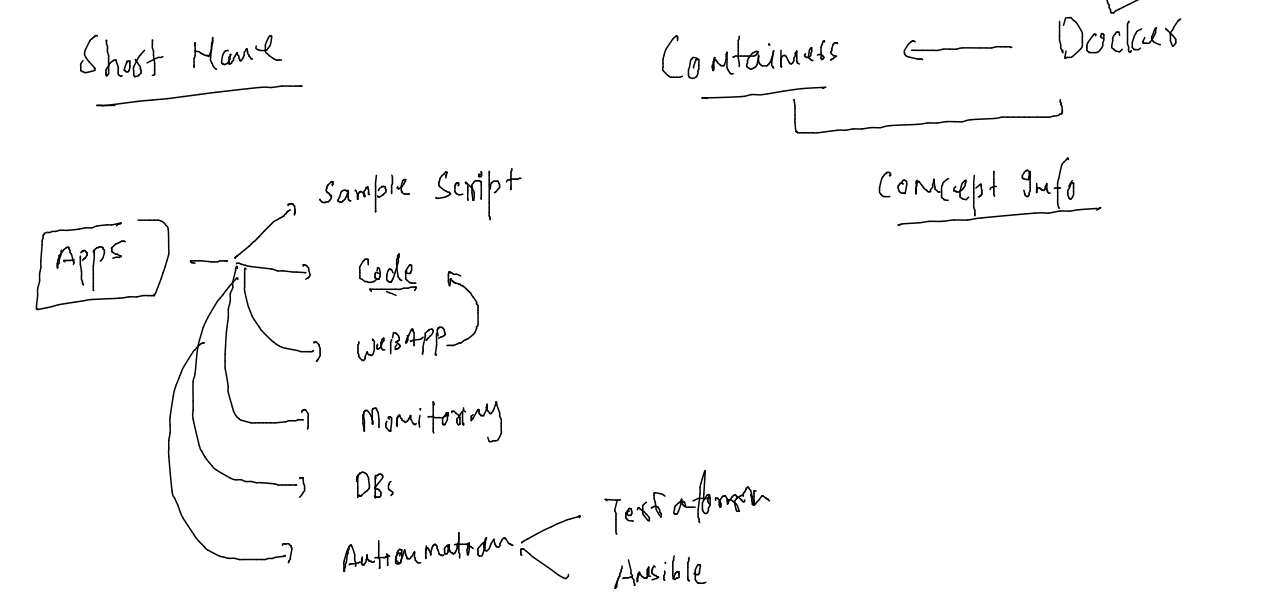 Short Name
Containers
Docker
Concept Info
Sample Script
Apps
Code
WebApp
Monitoring
DBs
Automation
Terraform
Ansible